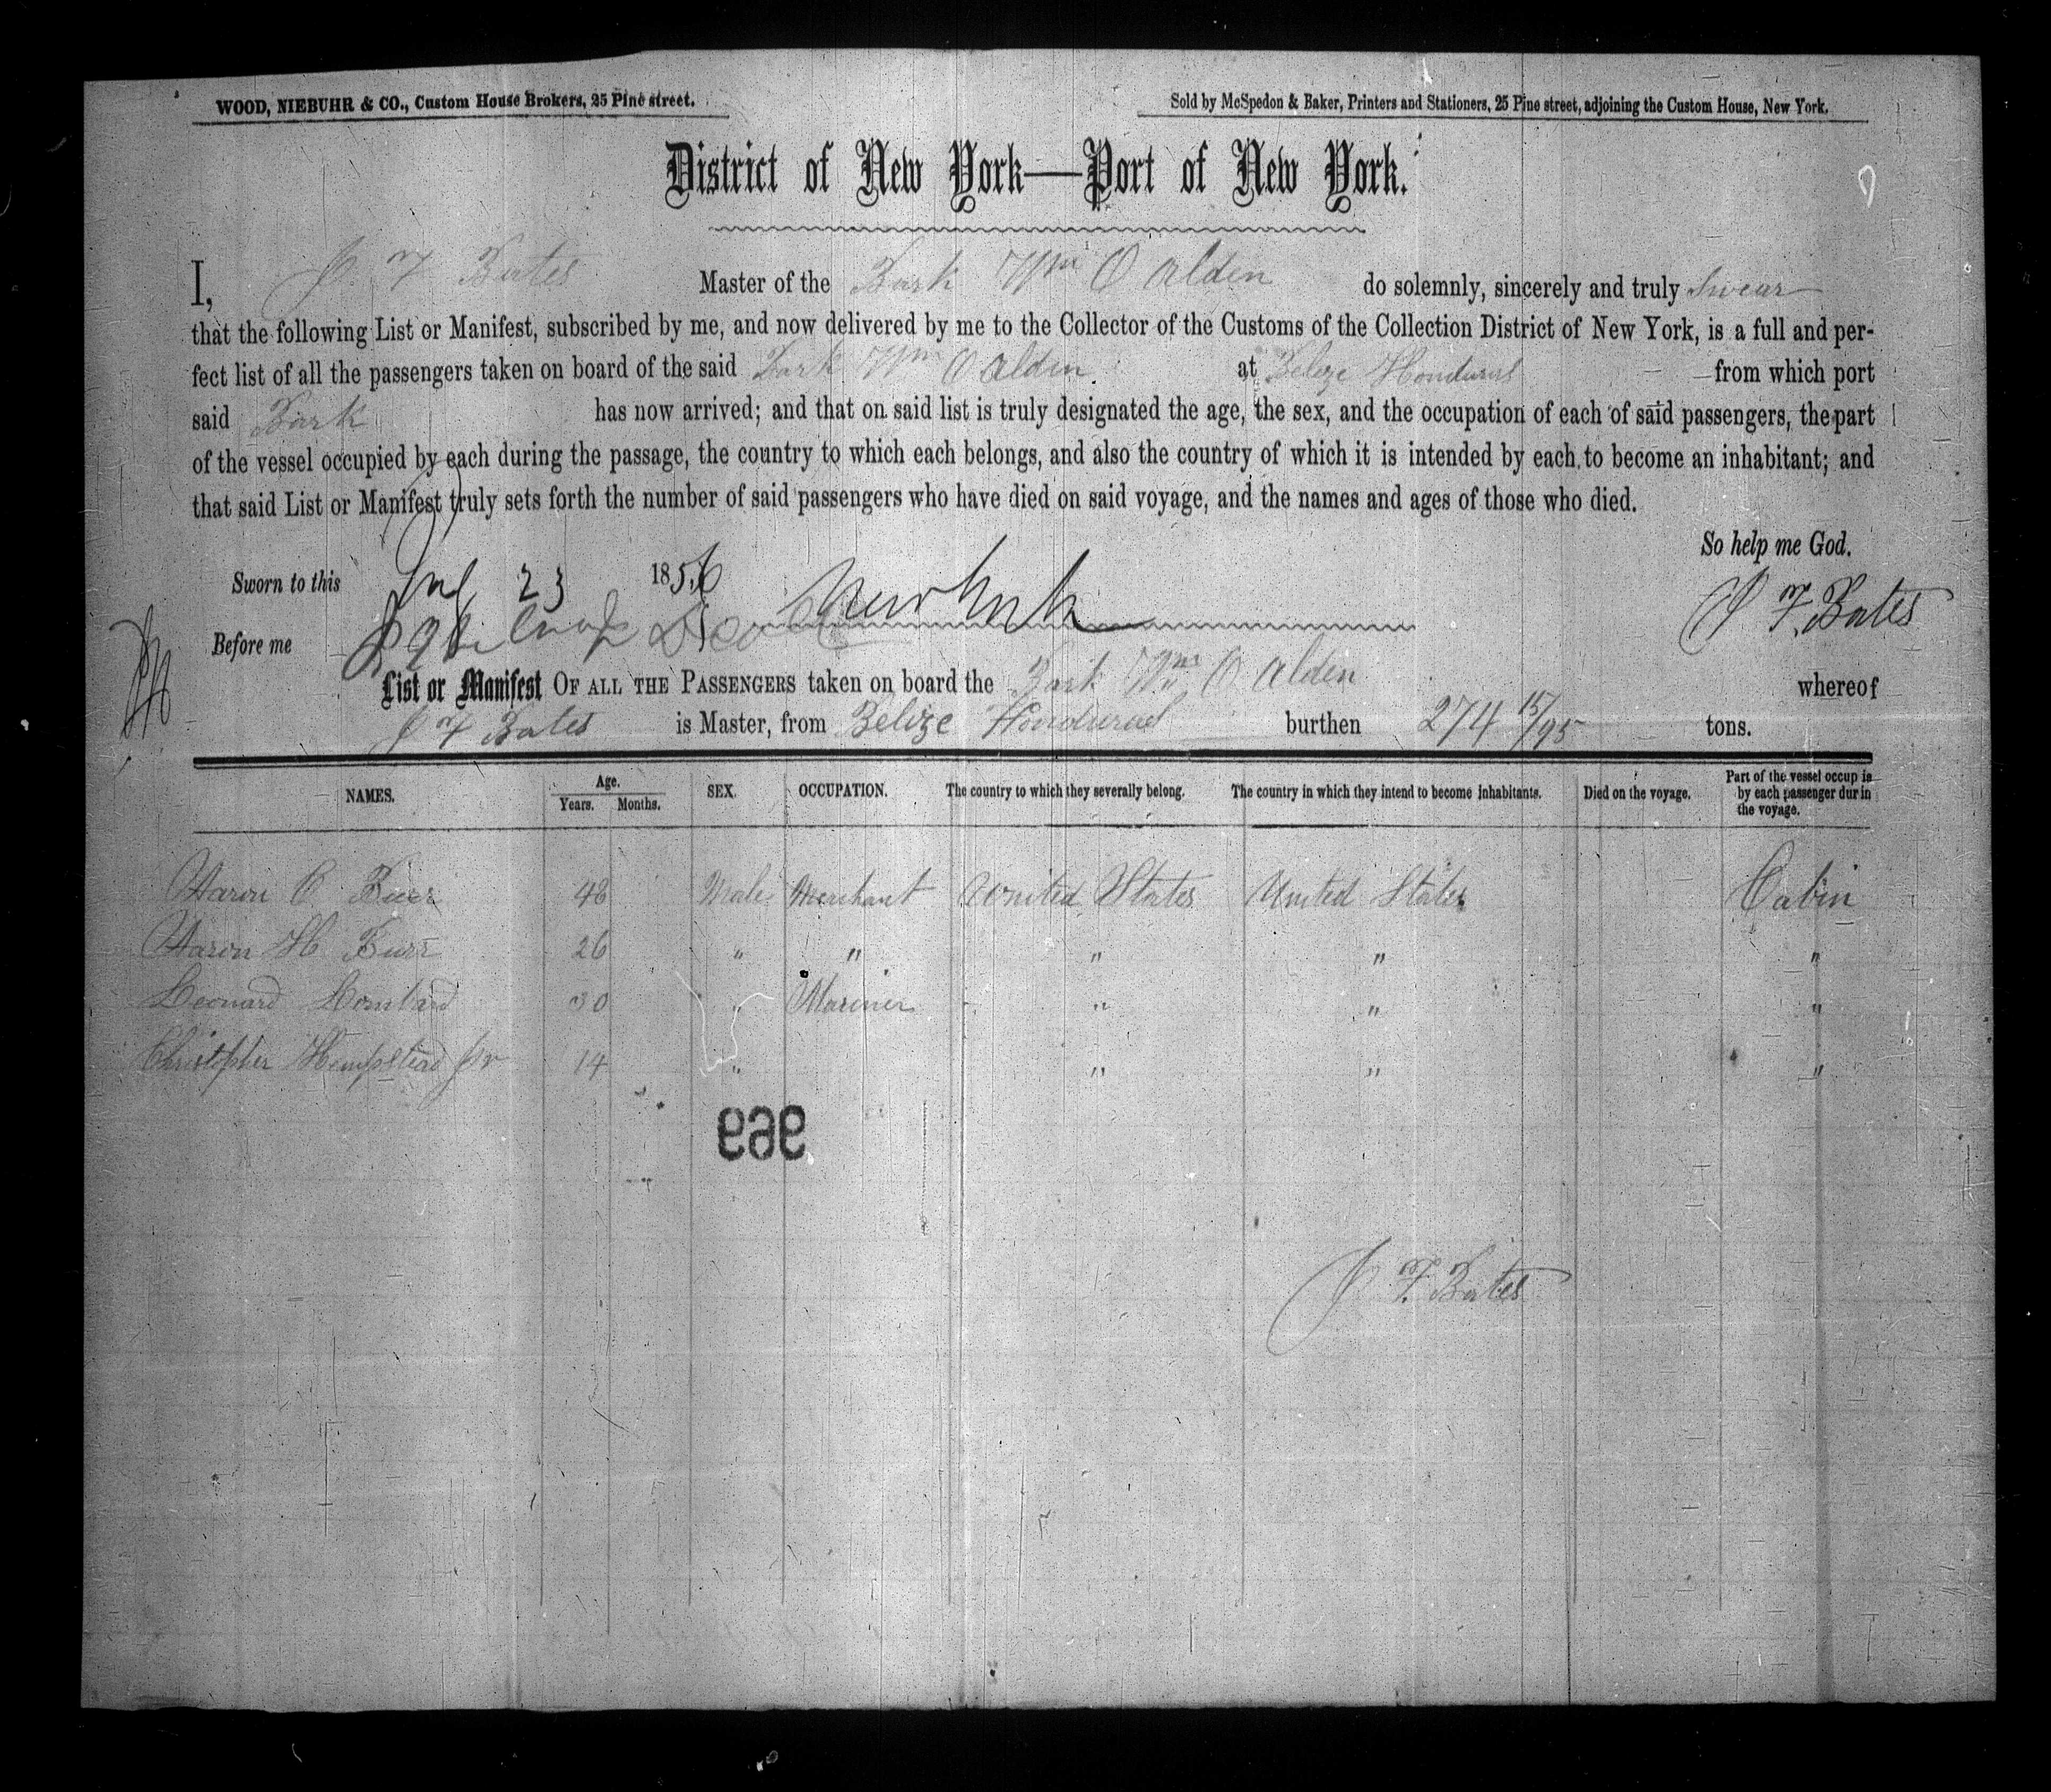 WOOD, NIEBUHR & CO., Custom House Brokers, 25 Pine street.
Sold by McSpedon & Baker, Printers and Stationers, 25 Pine street, adjoining the Custom House, New York.
District of New York—Port of New York.
I, J. F Bates Master of the Bark Wm O Alden do solemnly, sincerely and truly swear
that the following List or Manifest, subscribed by me, and now delivered by me to the Collector of the Customs of the Collection District of New York, is a full and per-
fect list of all the passengers taken on board of the said Bark Wm O Alden at Belize Honduras from which port
said Bark has now arrived; and that on said list is truly designated the age, the sex, and the occupation of each of said passengers, the part
of the vessel occupied by each during the passage, the country to which each belongs, and also the country of which it is intended by each to become an inhabitant; and
that said List or Manifest truly sets forth the number of said passengers who have died on said voyage, and the names and ages of those who died.
So help me God.
Sworn to this 23 1856
J F. Bates
Before me
List or Manifest OF ALL THE PASSENGERS taken on board the Bark Wm O Alden whereof
J F Bates is Master, from Belize Honduras burthen 274 15/95 tons.
NAMES. Age. Years. Months. SEX. OCCUPATION. The country to which they severally belong. The country in which they intend to become inhabitants. Died on the voyage. Part of the vessel occup is by each passenger dur in the voyage.
Aaron C Burr 48 Male Merchant United States United States Cabin
Aaron H Burr 26 " " " " "
Leonard Lombard 30 " Mariner " " "
Christopher Hempstead Jr 14 " " " "
969
J F. Bates